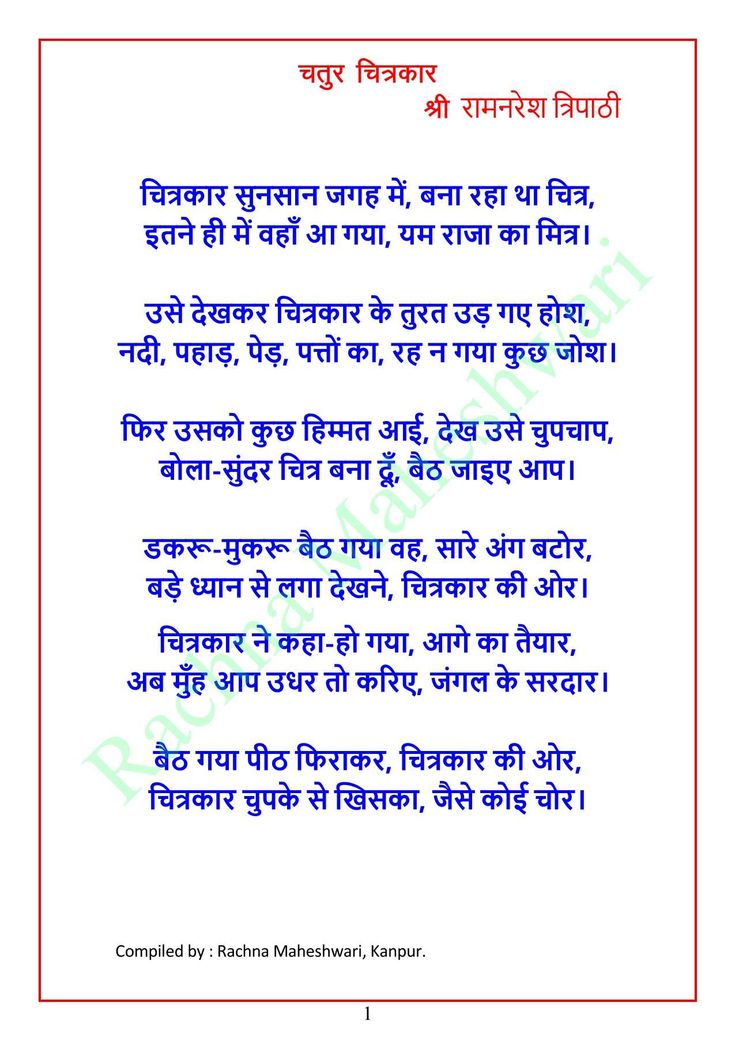 चतुर चित्रकार
श्री रामनरेश त्रिपाठी
चित्रकार सुनसान जगह में, बना रहा था चित्र,
इतने ही में वहाँ आ गया, यम राजा का मित्र।
उसे देखकर चित्रकार के तुरत उड़ गए होश,
नदी, पहाड़, पेड़, पत्तों का, रह न गया कुछ जोश।
फिर उसको कुछ हिम्मत आई, देख उसे चुपचाप,
बोला-सुंदर चित्र बना दूँ, बैठ जाइए आप।
डकरू-मुकरू बैठ गया वह, सारे अंग बटोर,
बड़े ध्यान से लगा देखने, चित्रकार की ओर।
चित्रकार ने कहा-हो गया, आगे का तैयार,
अब मुँह आप उधर तो करिए, जंगल के सरदार।
बैठ गया पीठ फिराकर, चित्रकार की ओर,
चित्रकार चुपके से खिसका, जैसे कोई चोर।
Rachna Maheshwari
Compiled by : Rachna Maheshwari, Kanpur.
1